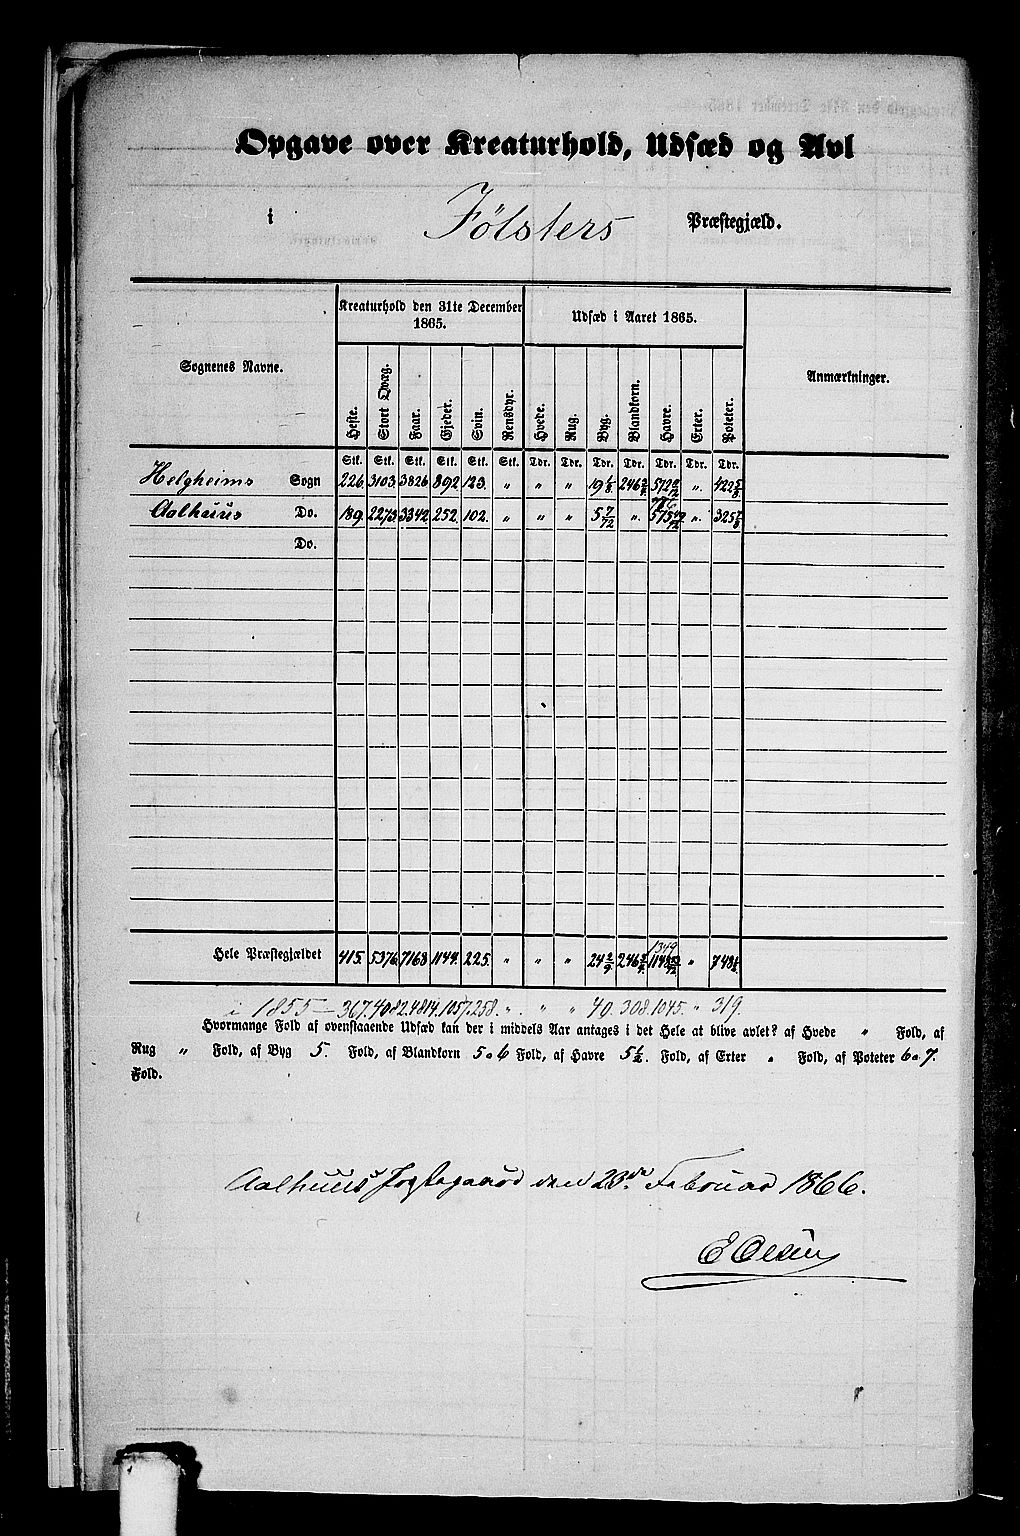 Opgave over Kreaturhold, Udsæd og Avl
i Jølsters Præstegjæld.
Sognenes Navne.
Kreaturhold den 31te December 1865.
Udsæd i Aaret 1865.
Anmærkninger.
Heste. Stort Qvæg. Faar. Gjeder. Svin. Rensdyr. Hvede. Rug. Byg. Blandkorn. Havre. Erter. Poteter.
Stk. Stk. Stk. Stk. Stk. Stk. Tdr. Tdr. Tdr. Tdr. Tdr. Tdr. Tdr.
Helgheims Sogn 226. 3103. 3826 892 123. " " " 19 1/8. 246 2/9. " 422 5/8.
Aalhuus Do. 189. 2273 3342 252. 102. " " " 5 7/72 " " 325 7/8
Do.
Hele Præstegjældet 415. 5376. 7168 1144. 225. " " " 24 2/9 246 2/9. 1349 "
i 1855 — 367. 4082. 4814. 1057. 258. " " " 40. 308. 1045. " 319.
Hvormange Fold af ovenstaaende Udsæd kan der i middels Aar antages i det Hele at blive avlet? af Hvede " Fold, af
Rug " Fold, af Byg 5. Fold, af Blandkorn 5 a 6 Fold, af Havre 5 1/2. Fold, af Erter " Fold, af Poteter 6 a 7.
Fold.
Aalhuus Fogdegaard den 23de Februar 1866.
E Olsen